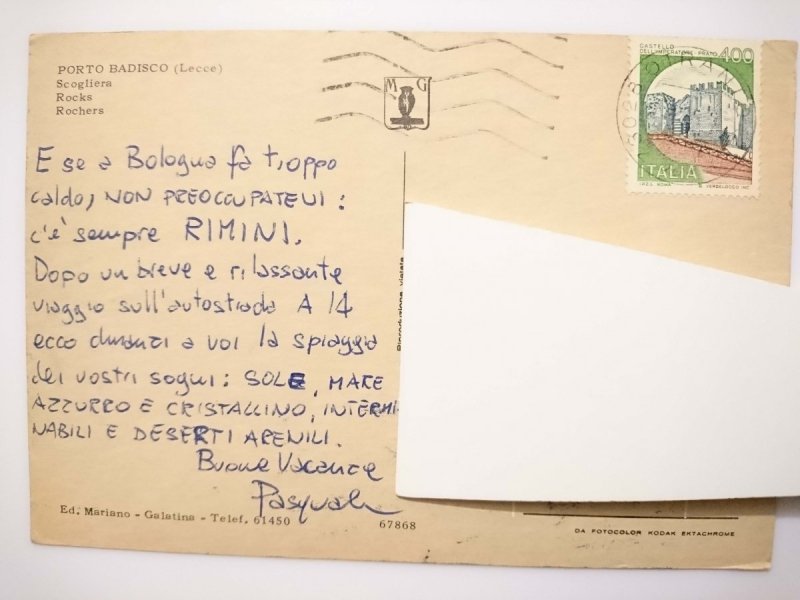 PORTO BADISCO (Lecce)
Scogliera
Rocks
Rochers
M G
CASTELLO
DELL'IMPERATORE-PRATO
400
ITALIA
I.P.Z.S. ROMA
E se a Bologna fa troppo
caldo, NON PREOCCUPATEVI:
c'è sempre RIMINI.
Dopo un breve e rilassante
viaggio sull'autostrada A 14
ecco davanti a voi la spiaggia
dei vostri sogni: SOLE, MARE
AZZURRO E CRISTALLINO, INTERMI
NABILI E DESERTI ARENILI.
Buone Vacanze
Pasquale
Riproduzione vietata
Ed. Mariano - Galatina - Telef. 61450
67868
DA FOTOCOLOR KODAK EKTACHROME